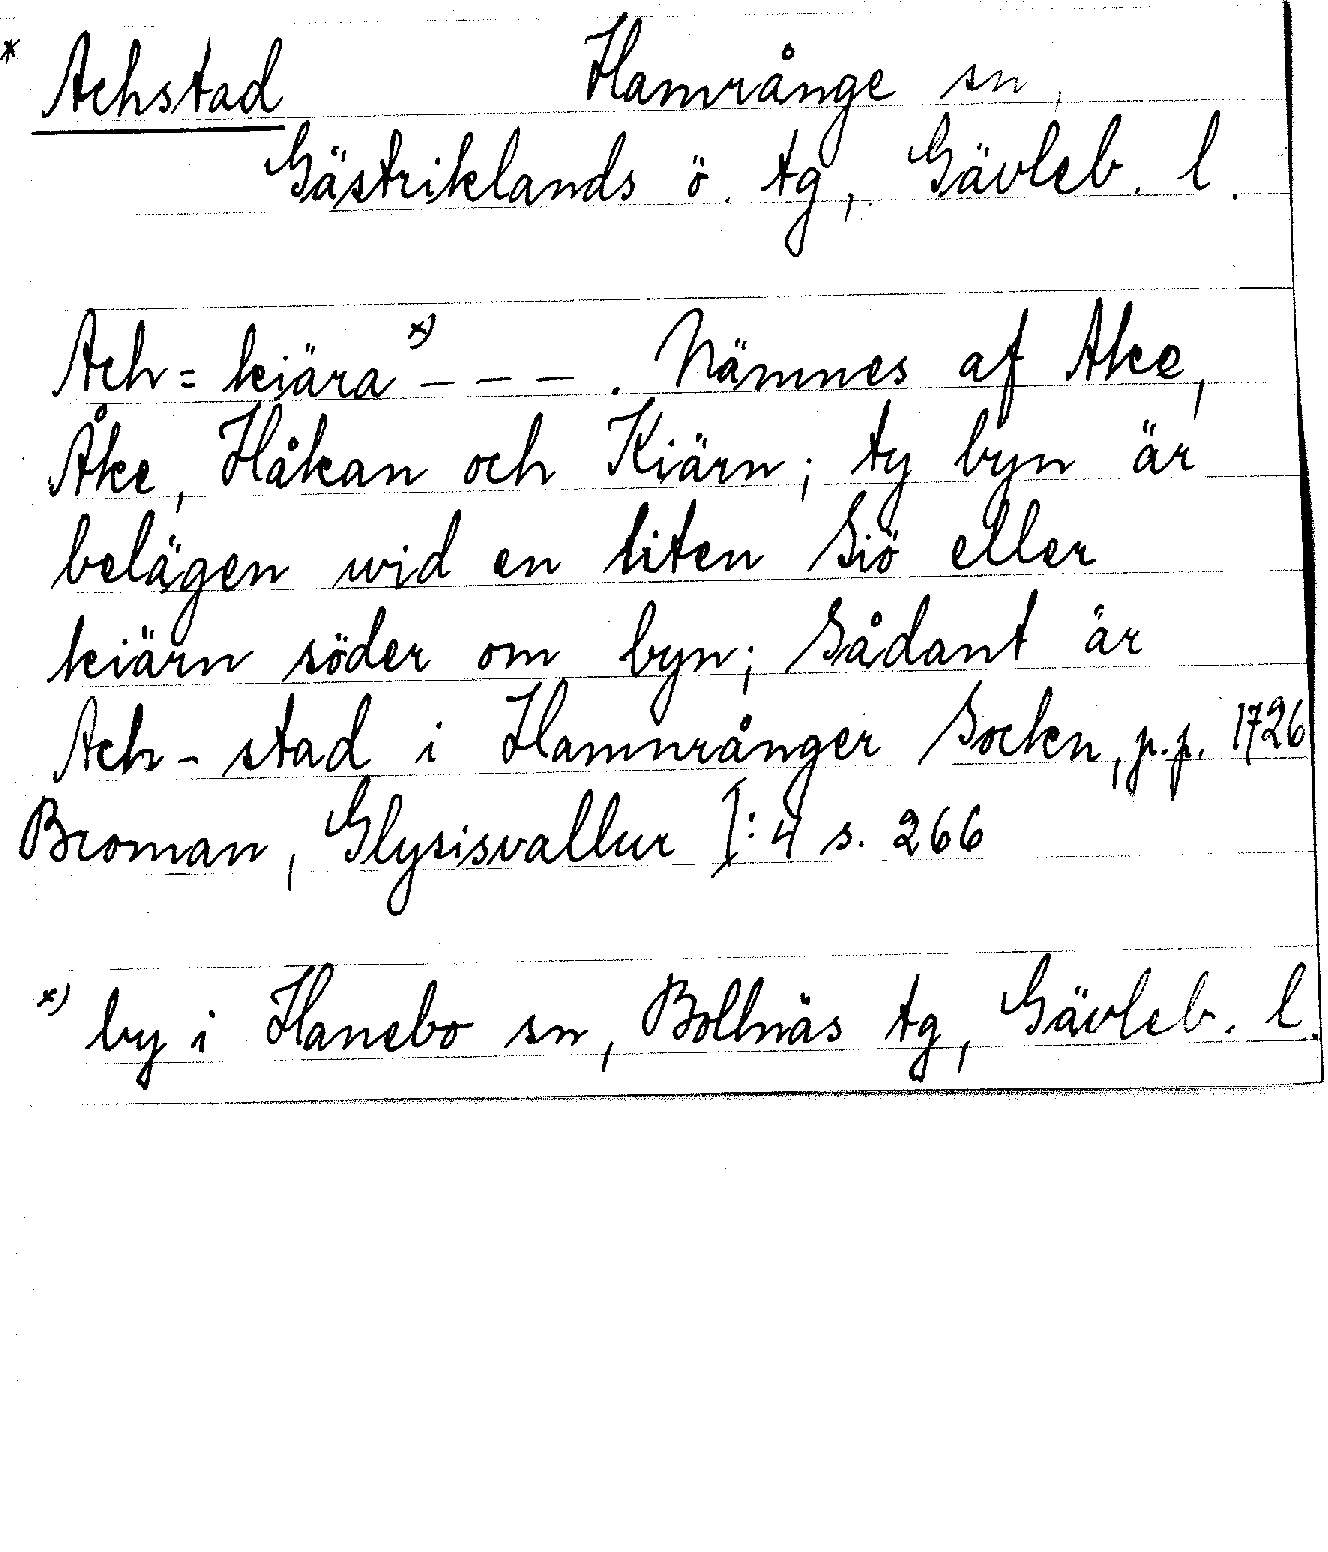 * Achstad Hamrånge sn,
Gästriklands ö. tg, Gävleb. l.
Ach=kiära x) – – – . Nämnes af Ake,
Åke, Håkan och Kiärn; ty byn är
belägen wid en liten Siö eller
kiärn söder om byn; Sådant är
Ach-stad i Hamnrånger Socken, p.p. 1726
Broman, Glysisvallur I:4 s. 266
x) by i Hanebo sn, Bollnäs tg, Gävleb. l.